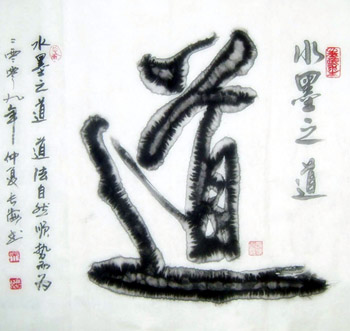 水墨之道
道
水墨之道 道法自然顺势而为
二零零九年仲夏